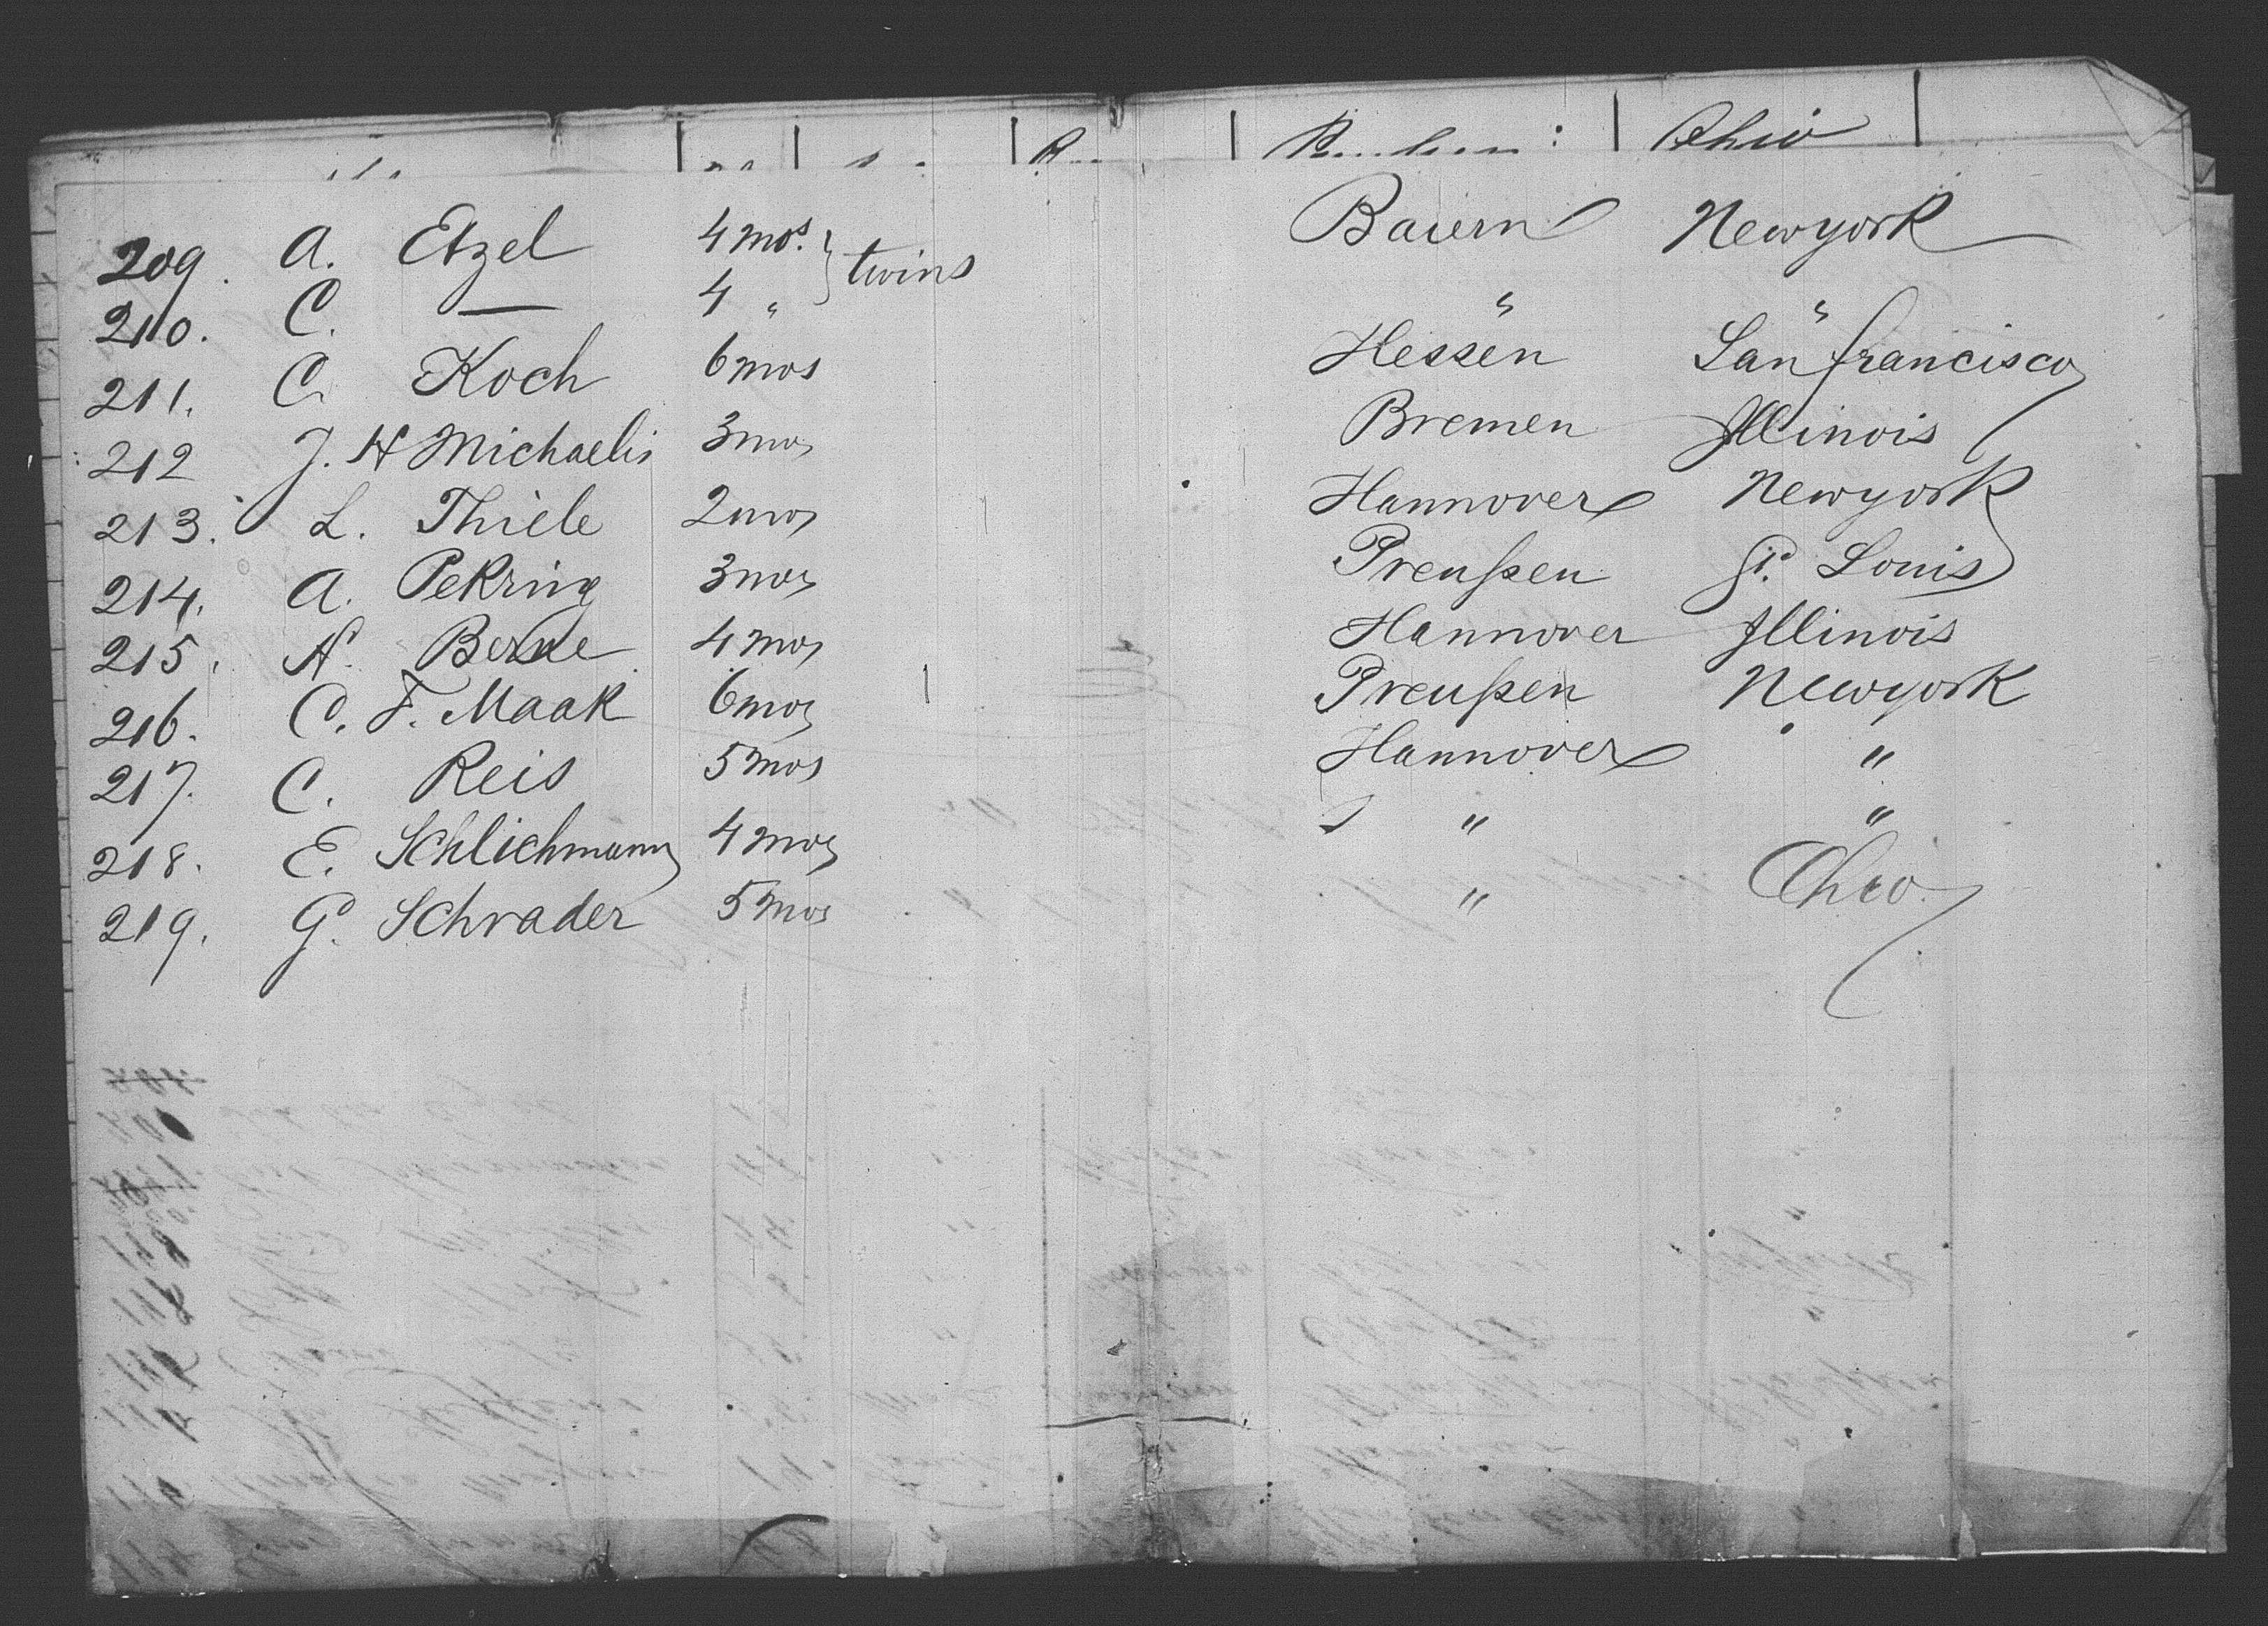 Ohio
209. A. Etzel 4 mos. } twins Baiern Newyork
210. C. — 4 " " "
211. C. Koch 6 mos Hessen San francisco
212 J. H Michaelis 3 mos Bremen Illinois
213. L. Thiele 2 mos Hannover Newyork
214. A. Pekring 3 mos Preußen St. Louis
215. H. 4 mos Hannover Illinois
216. C. F. Maak 6 mos Preußen Newyork
217. C. Reis 5 mos Hannover "
218. E. Schlichmann 4 mos " "
219. G. Schrader 5 mos " Ohio